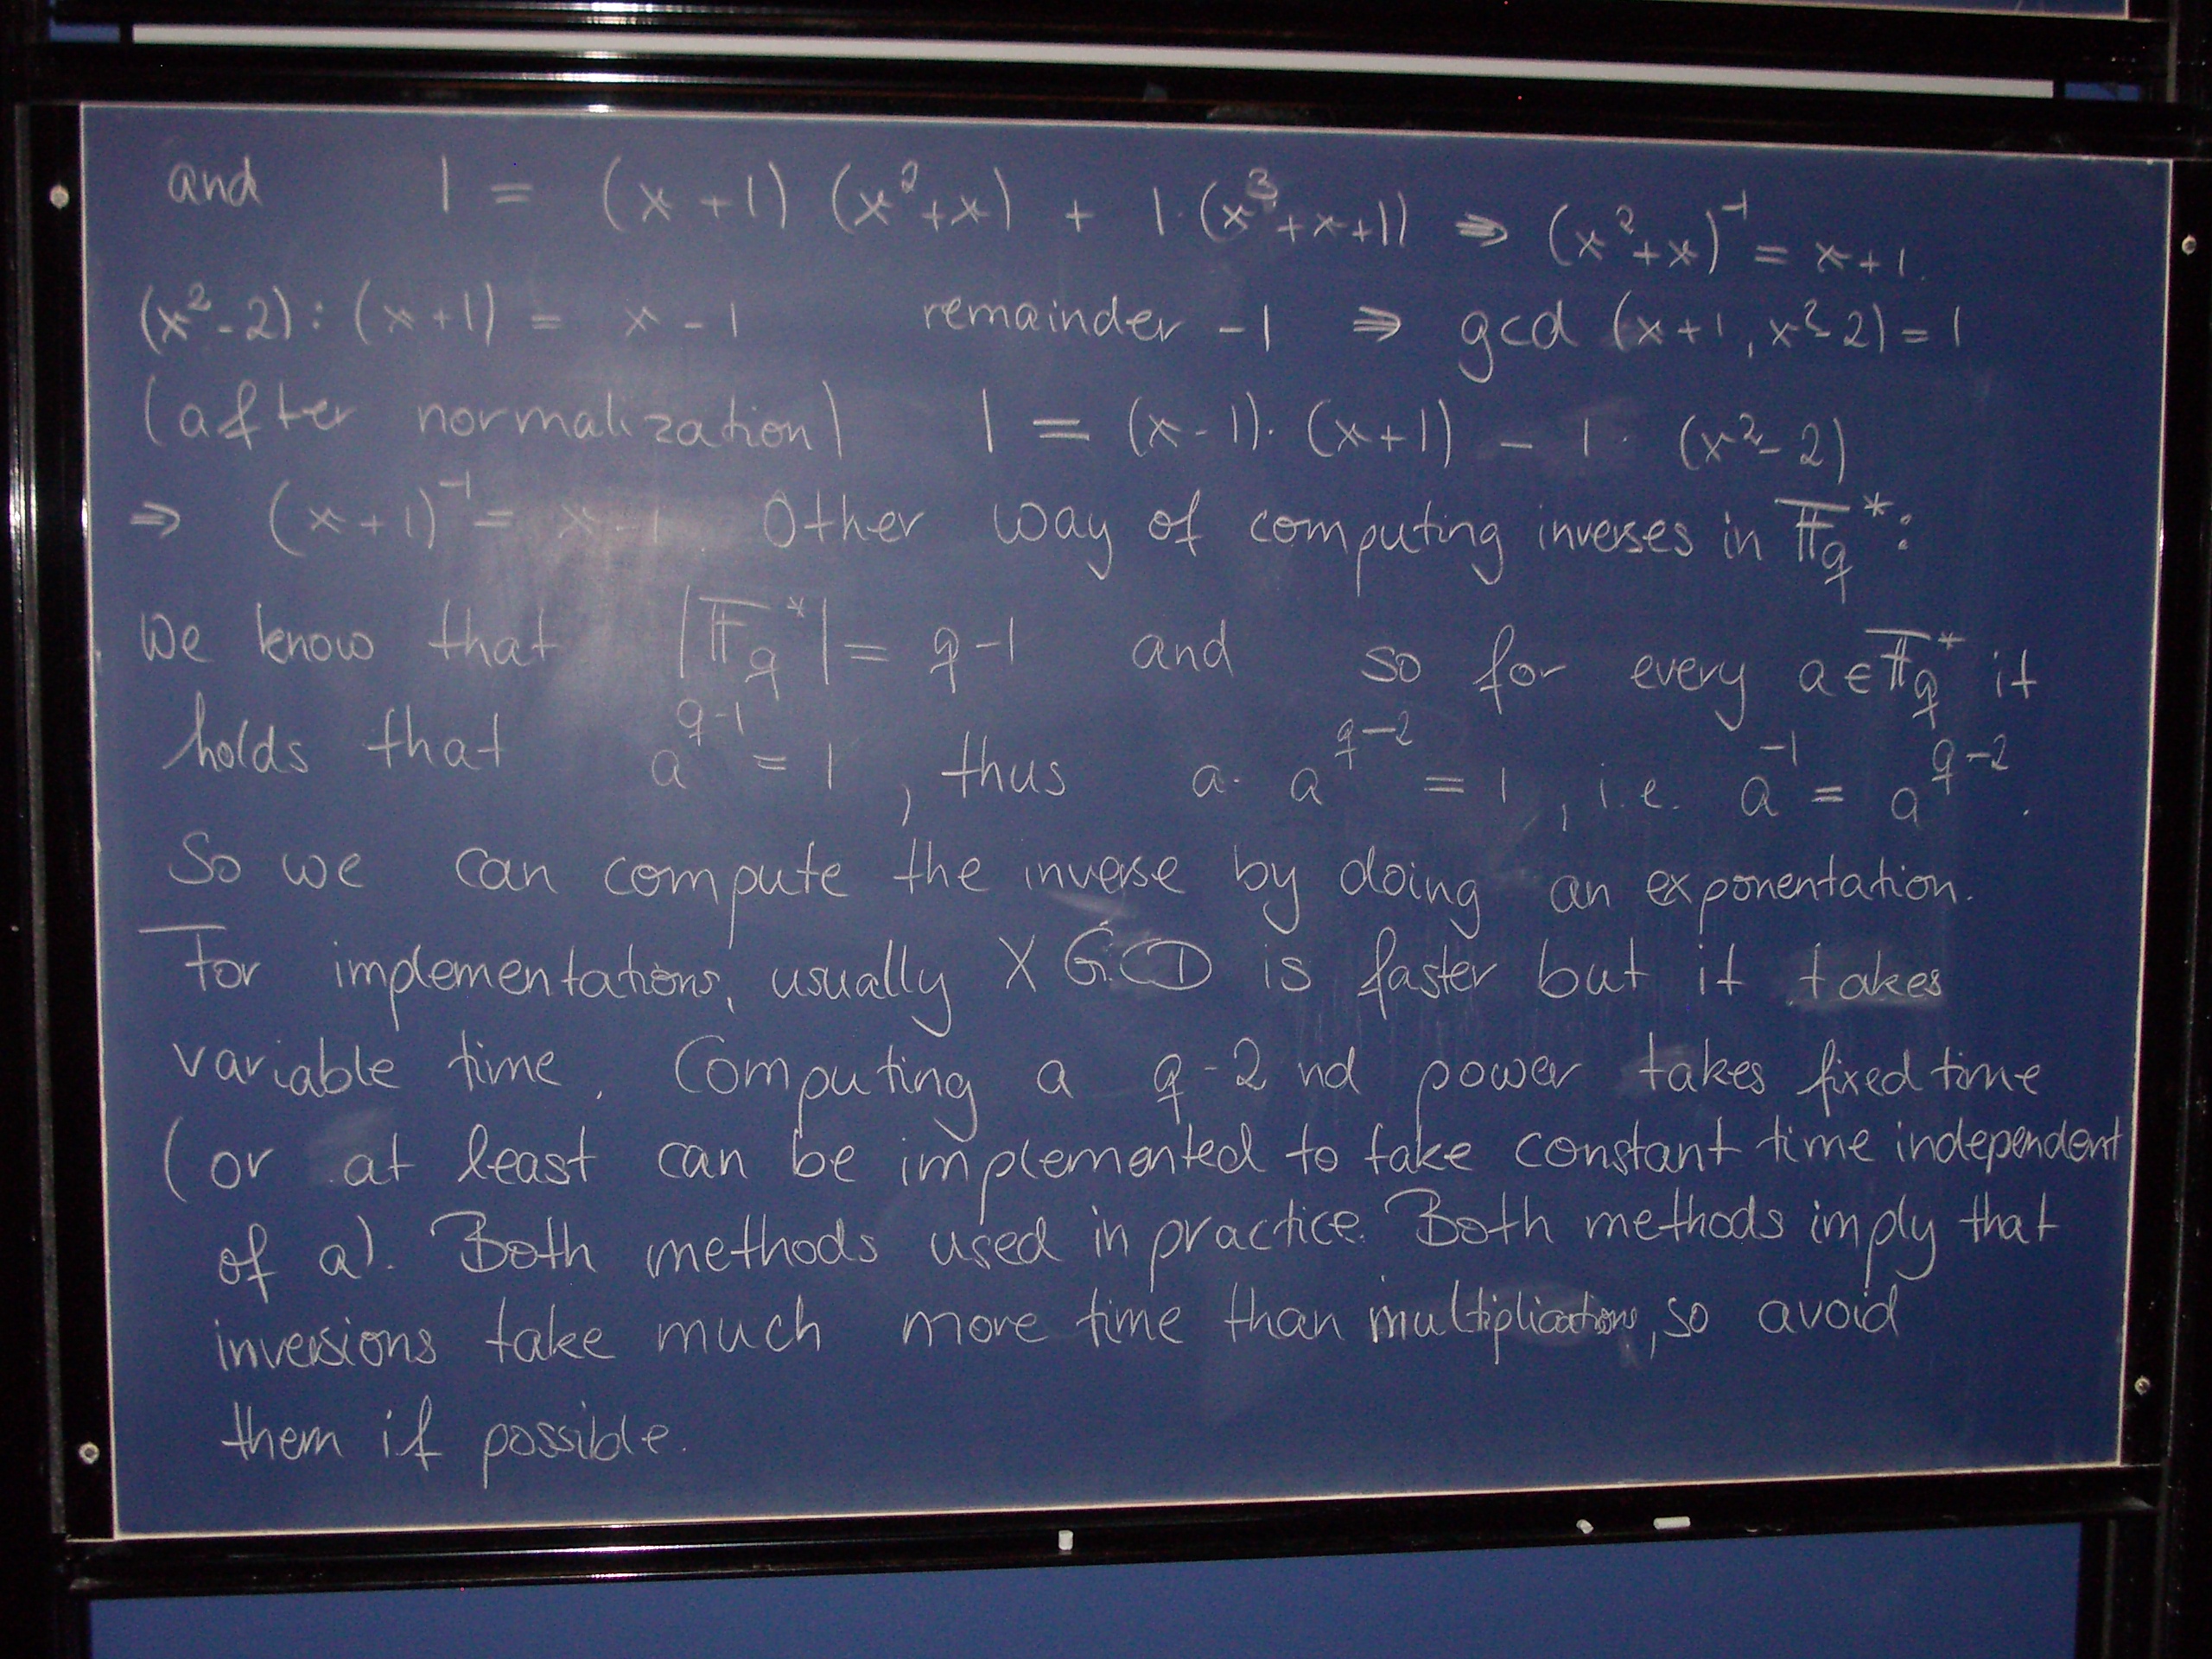 and 1 = (x+1) (x²+x) + 1·(x³+x+1) ⇒ (x²+x)⁻¹ = x+1.
(x²-2):(x+1) = x-1 remainder -1 ⇒ gcd (x+1, x²-2) = 1
(after normalization) 1 = (x-1)·(x+1) - 1·(x²-2)
⇒ (x+1)⁻¹ = x-1 Other way of computing inverses in 𝔽_q^*:
We know that |𝔽_q^*| = q-1 and so for every a∈𝔽_q^* it
holds that a^{q-1} = 1, thus a·a^{q-2} = 1, i.e. a⁻¹ = a^{q-2}.
So we can compute the inverse by doing an exponentation.
For implementations, usually XGCD is faster but it takes
variable time. Computing a q-2nd power takes fixed time
(or at least can be implemented to take constant time independent
of a). Both methods used in practice. Both methods imply that
inversions take much more time than multiplications, so avoid
them if possible.